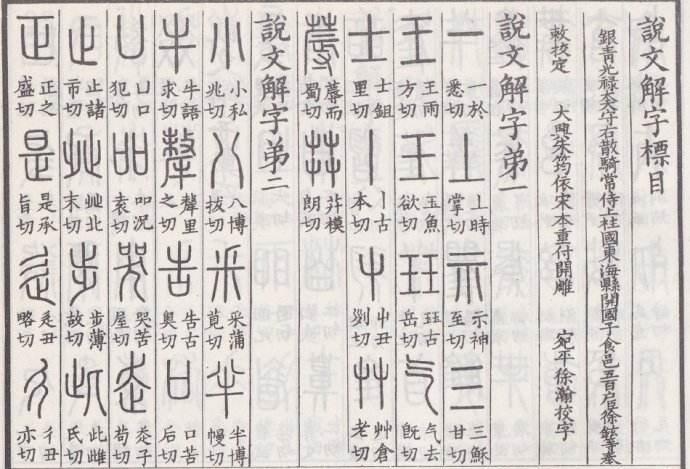 說文解字標目
銀青光祿大夫守右散騎常侍上柱國東海縣開國子食邑五百户臣徐鉉等奉
敕校定 大興朱筠依宋本重付開雕 宛平徐瀚校字
說文解字弟一
一 一於悉切 丄 丄時掌切 示 示神至切 三 三穌甘切
王 王雨方切 玉 玉魚欲切 玨 玨古岳切 气 气去旣切
士 士鉏里切 丨 丨古本切 屮 屮丑切 艸 艸倉老切
蓐 蓐而蜀切 茻 茻模朗切
說文解字弟二
小 小私兆切 八 八博拔切 釆 釆蒲莧切 半 半博幔切
牛 牛語求切 犛 犛里之切 告 告古奥切 口 口苦后切
凵 凵口犯切 吅 吅况袁切 哭 哭苦屋切 走 走子苟切
止 止諸市切 癶 癶北末切 步 步薄故切 此 此雌氏切
正 正之盛切 是 是承旨切 辵 辵丑略切 彳 彳丑亦切